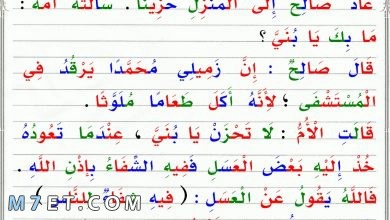 عَادَ صَالِحٌ إِلَى الْمَنْزِلِ حَزِينًا . سَأَلَتْهُ أُمُّهُ :
مَا بِكَ يَا بُنَيَّ ؟
قَالَ صَالِحٌ : إِنَّ زَمِيلِي مُحَمَّدًا يَرْقُدُ فِي
الْمُسْتَشْفَى ؛ لِأَنَّهُ أَكَلَ طَعَامًا مُلَوَّثًا .
قَالَتِ الْأُمُّ : لَا تَحْزَنْ يَا بُنَيَّ ، عِنْدَمَا تَعُودُهُ
خُذْ إِلَيْهِ بَعْضَ الْعَسَلِ فَفِيهِ الشِّفَاءُ بِإِذْنِ اللَّهِ .
فَاللَّهُ يَقُولُ عَنْ الْعَسَلِ : ( فِيهِ شِفَاءٌ لِلنَّاسِ )
M7ET.COM